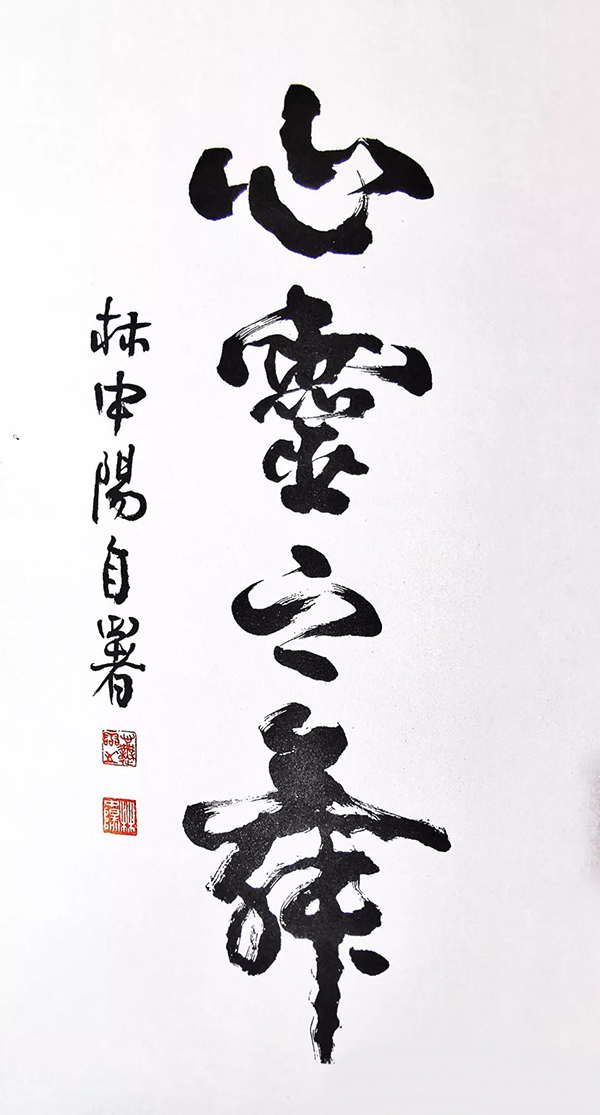 心靈之舞
林申陽自署